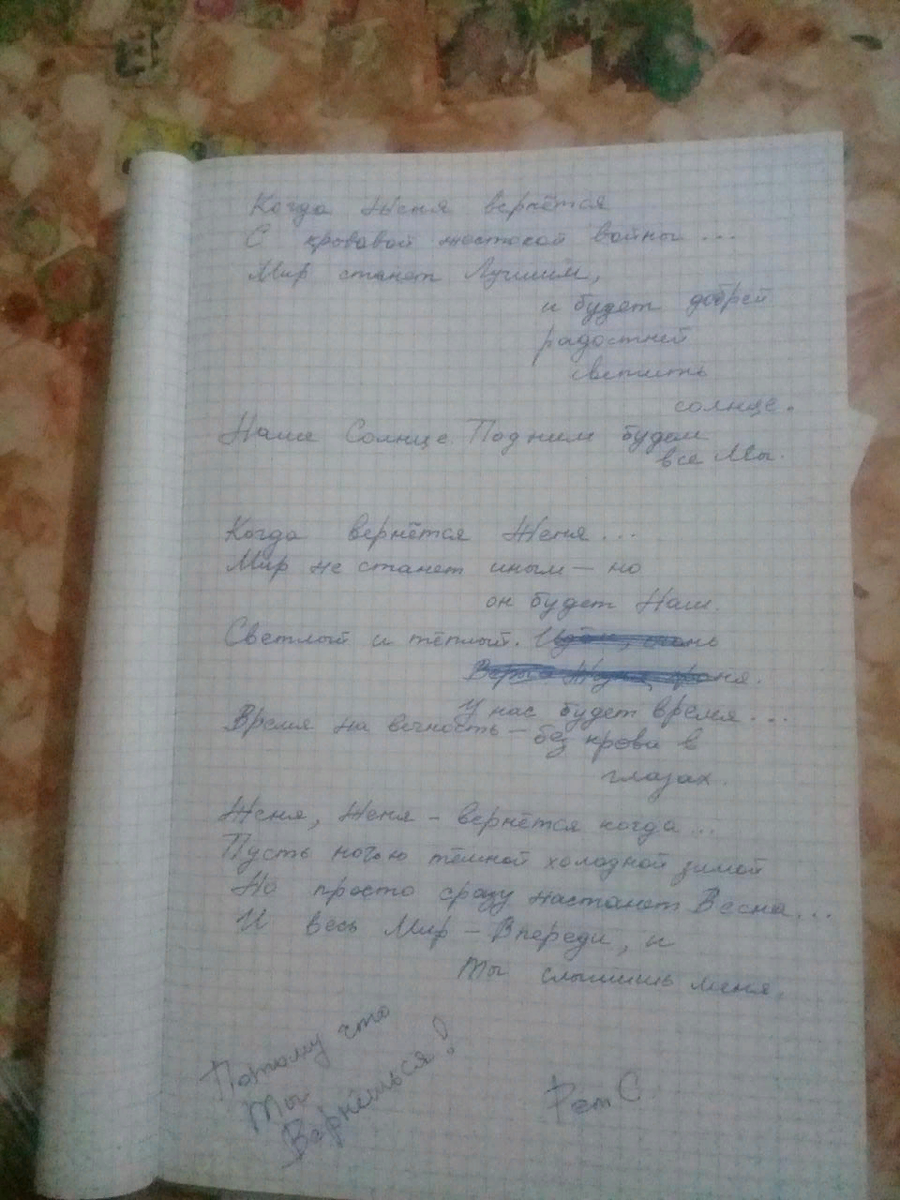 Когда Женя вернётся
С кровавой жестокой войны ...
Мир станет Лучшим,
и будет добрей
радостней
светить
солнце.
Наше Солнце. Под ним будем
все Мы.
Когда вернётся Женя ...
Мир не станет иным — но
он будет Наш.
Светлый и тёплый.
у нас будет время ...
Время на вечность — без крова в
глазах.
Женя, Женя - вернётся когда ...
Пусть ночью тёмной холодной зимой
Но просто сразу настанет Весна ...
И весь Мир - Впереди, и
Ты слышишь меня,
Потому что
Ты
Вернёшься!